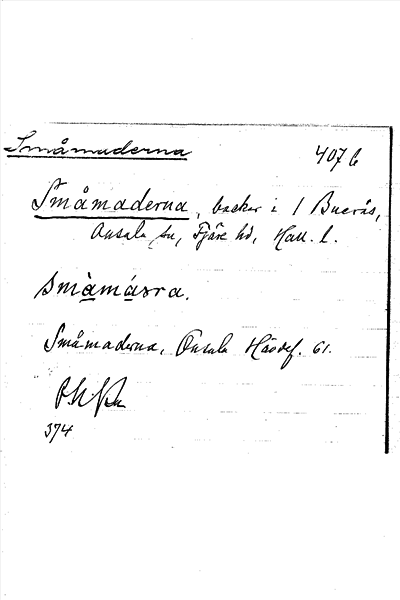 Småmaderna 407 b
Småmaderna, backar i 1 Buerås,
Onsala sn, Fjäre hd, Hall. l.
småmásra.
Småmaderna, Onsala Hävdef. 61.
374